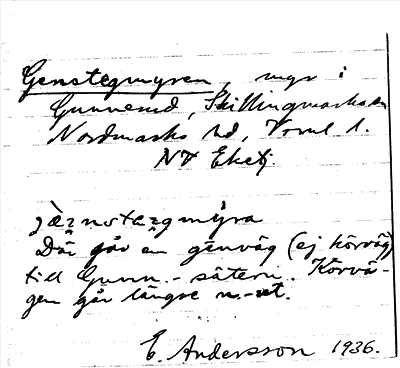 Genstegmyren, mgr i
Gunnerud, Skillingmarks sn
Nordmarks hd, Vrml. l.
NV Eketj.
jæ̀nstegmỳra
Där går en genväg (ej körväg)
till Gunn.-sätern. Körvä-
gen går längre n.-ut.
E. Andersson 1936.